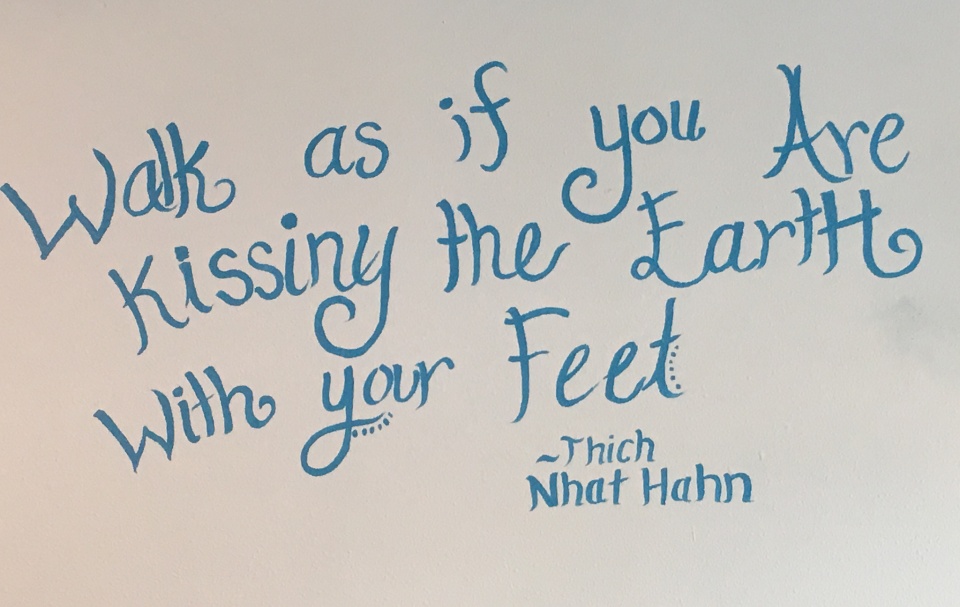 Walk as if you Are
Kissing the EartH
With your Feet
~Thich
Nhat Hahn